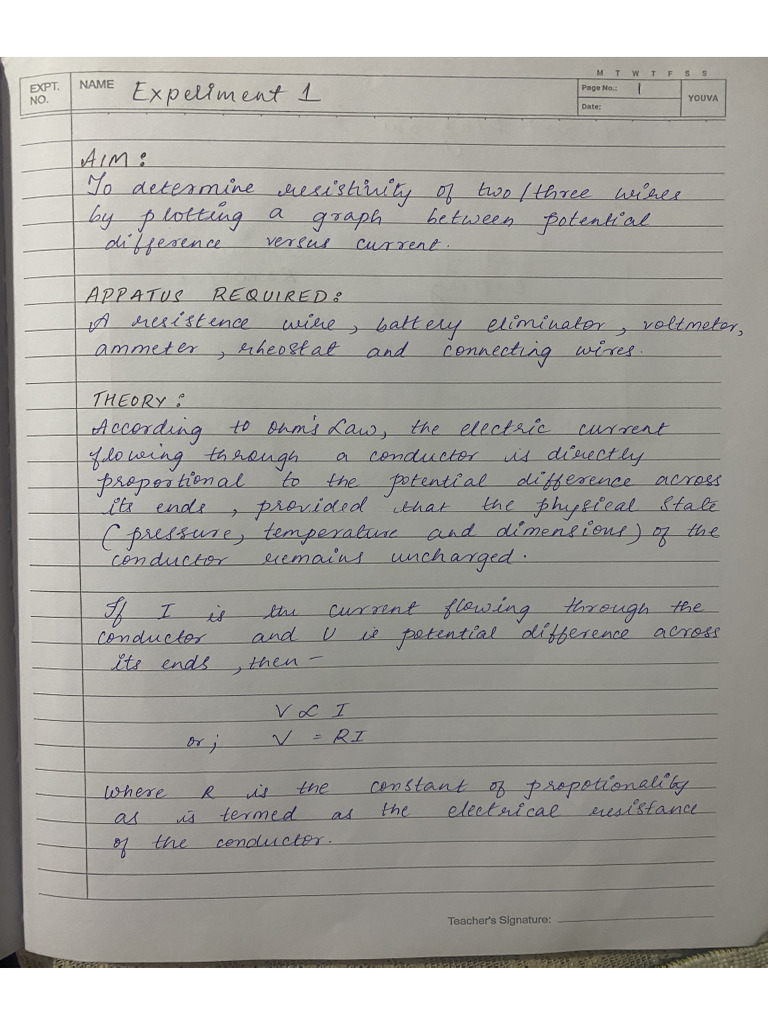 M T W T F S S
EXPT. NO.
NAME Experiment 1
Page No.: 1
Date:
YOUVA
AIM:
To determine resistivity of two/three wires
by plotting a graph between potential
difference versus current.
APPATUS REQUIRED:
A resistence wire, battery eliminator, voltmeter,
ammeter, rheostat and connecting wires.
THEORY:
According to Ohm's Law, the electric current
flowing through a conductor is directly
proportional to the potential difference across
its ends, provided that the physical state
(pressure, temperature and dimensions) of the
conductor remains uncharged.
If I is the current flowing through the
conductor and V is potential difference across
its ends, then -
V ∝ I
or; V = RI
where R is the constant of propotionality
as is termed as the electrical resistance
of the conductor.
Teacher's Signature: